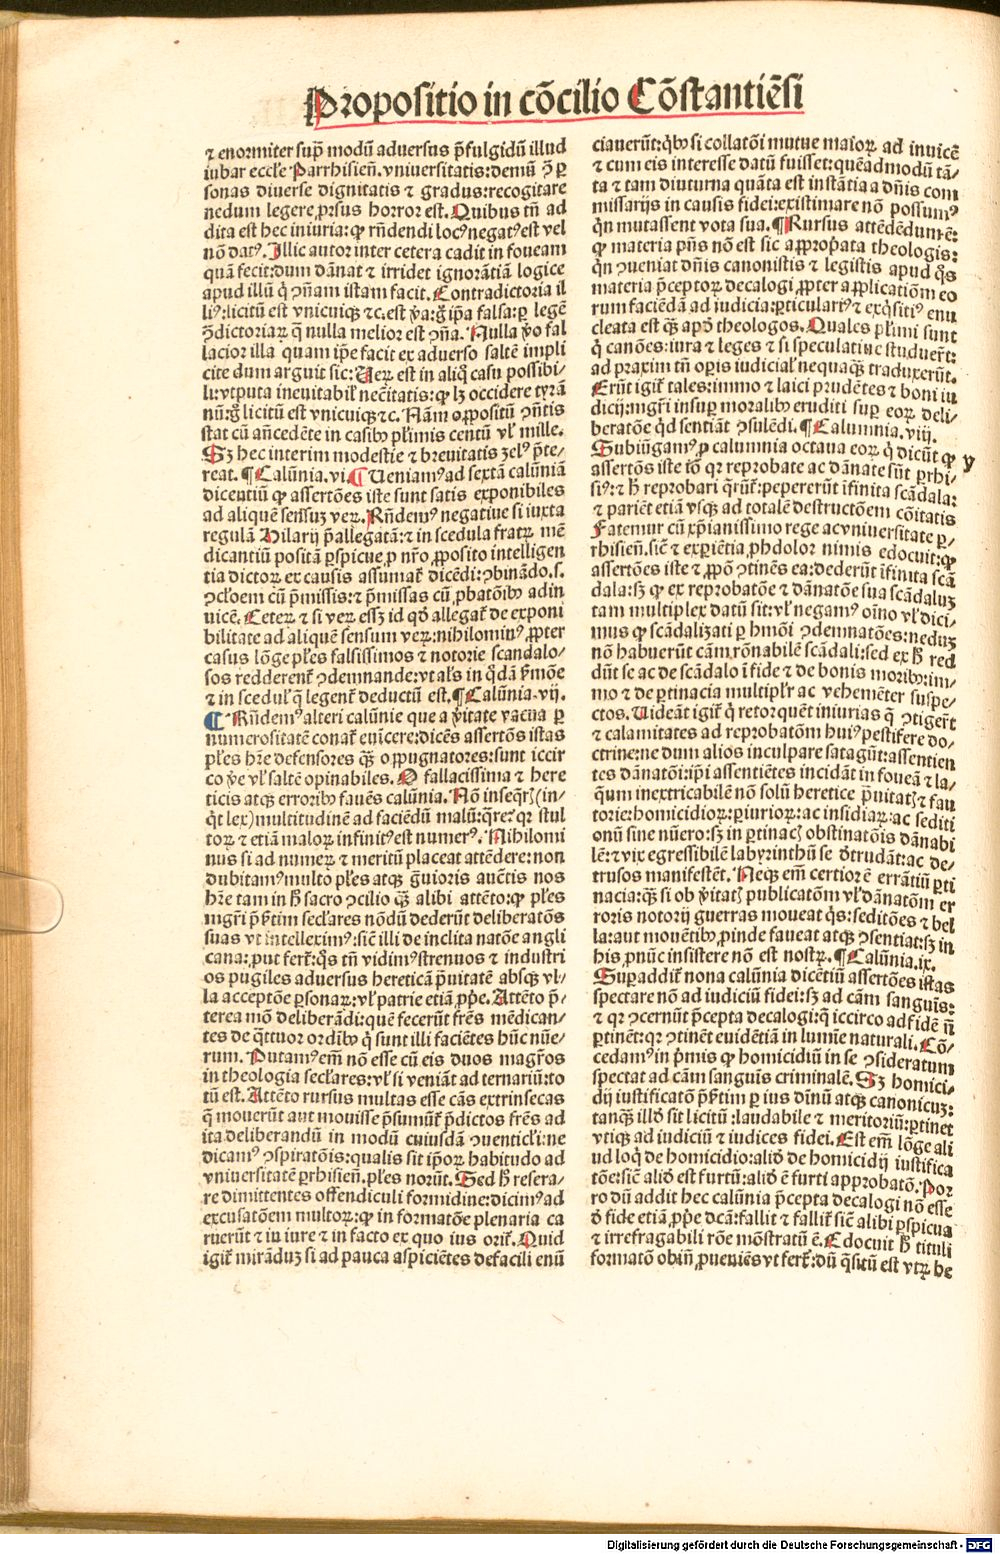 Propositio in cōcilio Cōstantiēsi
⁊ enormiter sup̄ modū aduersus p̄fulgidū illud
iubar eccl̄e Parrhisien̄. vniuersitatis: demū ꝯ̄ ꝑ
sonas diuerse dignitatis ⁊ gradus: recogitare
nedum legere, ꝓrsus horror est. Quibus tn̄ ad
dita est hec iniuria: ꝙ rn̄dendi locꝰ negatꝰ est vel
nō datꝰ. Illic autor inter cetera cadit in foueam
quā fecit: dum dānat ⁊ irridet ignorātiā logice
apud illū q̇ ꝯn̄am istam facit. Contradictoria il
liꝰ: licitū est vnicuiqꝫ ⁊c. est v̄a: g̊ ip̄a falsa: ꝑ legē
ꝯdictoriaꝝ q̄ nulla melior est ꝯn̄a. Nulla v̊o fal
lacior illa quam ip̄e facit ex aduerso saltē impli
cite dum arguit sic: Veꝝ est in aliq̊ casu possibi⸗
li: vtputa ineuitabil̄ nec̄itatis: ꝙ lꝫ occidere tyrā
nū: g̊ licitū est vnicuiqꝫ ⁊c. Nām oꝓpositū ꝯn̄tis
stat cū an̄cedēte in casibꝰ pl̄imis centū vl̄ mille.
Sꝫ hec interim modestie ⁊ breuitatis zelꝰ p̄te⸗
reat. ¶ Calūnia. vi. ¶ Veniamꝰ ad sextā calūniā
dicentiū ꝙ assertōes iste sunt satis exponibiles
ad aliquē sensuꝫ veꝝ. Rn̄demꝰ negatiue si iuxta
regulā Hilarij p̄allegatā: ⁊ in scedula fratꝝ mē
dicantiū positā ꝑspicue, ꝓ nr̄o, ꝓposito intelligen
tia dictoꝝ ex causis assumat̄ dicēdi: ꝯbinādo .s.
ꝯcl̄oem cū p̄missis: ⁊ p̄missas cū, ꝓbatōibꝰ adin
uicē. Ceteꝝ ⁊ si veꝝ essꝫ id qd̊ allegat̄ de exponi
bilitate ad aliquē sensum veꝝ: nihilominꝰ, ꝓpter
casus lōge pl̄es falsissimos ⁊ notorie scandalo⸗
sos redderent̄ ꝯdemnande: vt al̄s in q̇dā p̄mōe
⁊ in scedul̄ q̄ legent̄ deductū est. ¶ Calūnia. vij.
¶ Rn̄demꝰ alteri calūnie que a v̄itate vacua ꝑ
numerositatē conat̄ euīcere: dicēs assertōs istas
pl̄es hr̄e defensores qꝫ oꝓpugnatores: sunt iccir
co v̄e vl̄ saltē opinabiles. O fallacissima ⁊ here
ticis atqꝫ erroribꝰ fauēs calūnia. Nō inseq̄r (in⸗
q̇t lex) multitudinē ad faciēdū malū: q̄re: qꝛ stul
toꝝ ⁊ etiā maloꝝ infinitꝰ est numerꝰ. Nihilomi
nus si ad numeꝝ ⁊ meritū placeat attēdere: non
dubitamꝰ multo pl̄es atqꝫ g̊uioris auc̄tis nos
hr̄e tam in h̄ sacro ꝯcilio qꝫ̄ alibi attēto: ꝙ pl̄es
mgr̄i p̄s̄tim sec̄lares nōdū dederūt deliberatōs
suas vt intelleximꝰ: sic̄ illi de inclita natōe angli
cana: ,put fert̄: q̊s tn̄ vidimꝰ strenuos ⁊ industri
os pugiles aduersus hereticā p̄uitatē absqꝫ vl⸗
la acceptōe ꝑsonaꝝ: vl̄ patrie etiā, ꝓp̄e. Attēto p̄⸗
terea mō deliberādi: quē fecerūt fr̄es mēdican⸗
tes de q̄ttuor ordībꝰ q̇ sunt illi faciētes hūc nūe⸗
rum. Putamꝰ em̄ nō esse cū eis duos magr̄os
in theologia sec̄lares: vl̄ si veniāt ad ternariū: to
tū est. Attēto rursus multas esse cās extrinsecas
q̄ mouerūt aut mouisse p̄sumūt̄ p̄dictos fr̄es ad
ita deliberandū in modū cuiusdā ꝯuenticl̄i: ne
dicamꝰ ꝯspiratōis: qualis sit ip̄oꝝ habitudo ad
vniuersitatē ꝑrhisien̄. pl̄es norūt. Sed h̄ resera⸗
re dimittentes offendiculi formidine: dicimꝰ ad
excusatōem multoꝝ: ꝙ in formatōe plenaria ca
ruerūt ⁊ in iure ⁊ in facto ex quo ius orit̄. Quid
igit̄ mirāduꝫ si ad pauca aspiciētes defacili enū
ciauerūt: q̇bꝰ si collatōi mutue maioꝝ ad inuicē
⁊ cum eis interesse datū fuisset: quēadmodū tā⸗
ta ⁊ tam diuturna quāta est instātia a dn̄is com
missarijs in causis fidei: existimare nō possumꝰ
q̇n mutassent vota sua. ¶ Rursus attēdēdum ē:
ꝙ materia pn̄s nō est sic aꝓpropata theologis:
q̇n ꝯueniat dn̄is canonistis ⁊ legistis apud q̊s
materia p̄ceptoꝝ decalogi, ꝓpter aꝓplicatiōm eo
rum faciēdā ad iudicia: ꝑticulariꝰ ⁊ exq̇sitiꝰ enu
cleata est qꝫ̄ apd̊ theologos. Quales pl̄imi sunt
q̇ canōes: iura ⁊ leges ⁊ si speculatiue studuer̄t:
ad praxim tn̄ oꝑis iudicial̄ nequaqꝫ̄ traduxerūt.
Erūt igit̄ tales: immo ⁊ laici prudētes ⁊ boni iu
dicij: mgr̄i insuꝑ moralibꝰ eruditi suꝑ eoꝝ deli⸗
beratōe q̇d sentiāt ꝯsulēdi. ¶ Calumnia. viij.
Subiūgamꝰ, ꝓ calumnia octaua eoꝝ q̇ dicūt ꝙ
assertōs iste iō qꝛ reprobate ac dānate sūt ꝑrhi⸗
siꝰ: ⁊ h̄ reprobari q̄rūt̄: pepererūt īfinita scādala:
⁊ pariēt etiā vsqꝫ ad totalē destructōem cōitatis
Fatemur cū xp̄ianissimo rege ac vniuersitate ꝑ⸗
rhisien̄. sic̄ ⁊ expiētia, ꝓhdolor nimis edocuit: ꝙ
assertōes iste ⁊, ꝓpō ꝯtinēs ea: dederūt īfinita scā
dala: sꝫ ꝙ ex reprobatōe ⁊ dānatōe sua scādaluꝫ
tam multiplex datū sit: vl̄ negamꝰ oīno vl̄ dici⸗
mus ꝙ scādalizati ꝑ hmōi ꝯdemnatōes: neduꝫ
nō habuerūt cām, rōnabilē scādali: sed ex h̄ red
dūt se ac de scādalo ī fide ⁊ de bonis moribꝰ: im⸗
mo ⁊ de ꝑtinacia multipl̄r ac vehemēter suspe⸗
ctos. Uideāt igit̄ q̇ retorquēt iniurias q̄ ꝯtiger̄t
⁊ calamitates ad reprobatōm huiꝰ pestifere do⸗
ctrine: ne dum alios inculpare satagūt: assentien
tes dānatōi: ip̄i assentiētes incidāt in foueā ⁊ la⸗
q̄um inextricabilē nō solū heretice p̄uitatꝭ ⁊ fau
torie: homicidioꝝ: ꝑiurioꝝ: ac insidiaꝝ: ac sediti
onū sine nūero: sꝫ in ꝑtinacꝭ obstinatōis dānabi
lē: ⁊ vix egressibilē labyrinthū se d̊trudāt: ac de⸗
trusos manifestēt. Neqꝫ em̄ certior ē errātiū ꝑti
nacia: qꝫ̄ si ob v̄itatꝭ publicatōm vl̄ dānatōm er
roris notorij guerras moueat q̇s: seditōes ⁊ bel
la: aut mouētibꝰ, ꝓinde faueat atqꝫ ꝯsentiat: sꝫ in
his, ꝓnūc insistere nō est nostꝝ. ¶ Calūnia. ix.
Suꝑaddit̄ nona calūnia dicētiū assertōes istas
spectare nō ad iudiciū fidei: sꝫ ad cām sanguis:
⁊ qꝛ ꝯcernūt p̄cepta decalogi: q̄ iccirco ad fidē n̄
ꝑtinēt: qꝛ ꝯtinēt euidētiā in lumīe naturali. Cō⸗
cedamꝰ in p̄mis ꝙ homicidiū in se ꝯsideratum
spectat ad cām sanguīs criminalē. Sꝫ homici⸗
dij iustificatō p̄s̄tim ꝑ ius dīnū atqꝫ canonicuꝫ:
tanqꝫ̄ illd̊ sit licitū: laudabile ⁊ meritoriū: ꝑtinet
vtiqꝫ ad iudiciū ⁊ iudices fidei. Est em̄ lōge ali
ud loq̇ de homicidio: aliō de homicidij iustifica
tōe: sic̄ aliō est furtū: aliō ē furti approbatō. Por
ro dū addit hec calūnia p̄cepta decalogi nō esse
d̊ fide etiā, ꝓp̄e dc̄ā: fallit ⁊ fallit̄ sic̄ alibi ꝑspicua
⁊ irrefragabili rōe mōstratū ē. Edocuit h̄ tituli
formatō obiīn̄, ꝓueniēs vt fert̄: dū q̄situ est vtꝝ he
y
Digitalisierung gefördert durch die Deutsche Forschungsgemeinschaft - DFG